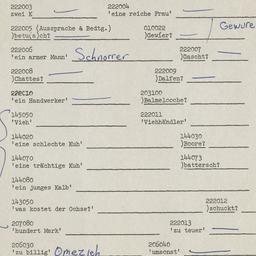 222003 222004
zwei K 'eine reiche Frau'
Gewure
222005 (Aussprache & Bedtg.) 010022
)betu(s)ch? )Gewier?
222006 222007
'ein armer Mann' Schnorrer )Gascht?
222008 222009
)Chattes? )Dalfen?
222010 203100
'ein Handwerker' )Balmeloche?
145050 222011
'Vieh' 'Viehhändler'
144020 144030
'eine schlechte Kuh' )Boore?
144070 144073
'eine trächtige Kuh' )battersch?
144080
'ein junges Kalb'
143050 222012
'was kostet der Ochse?' )schuckt?
207080 222013
'hundert Mark' 'zu teuer'
206030 206040
'zu billig' 'umsonst'